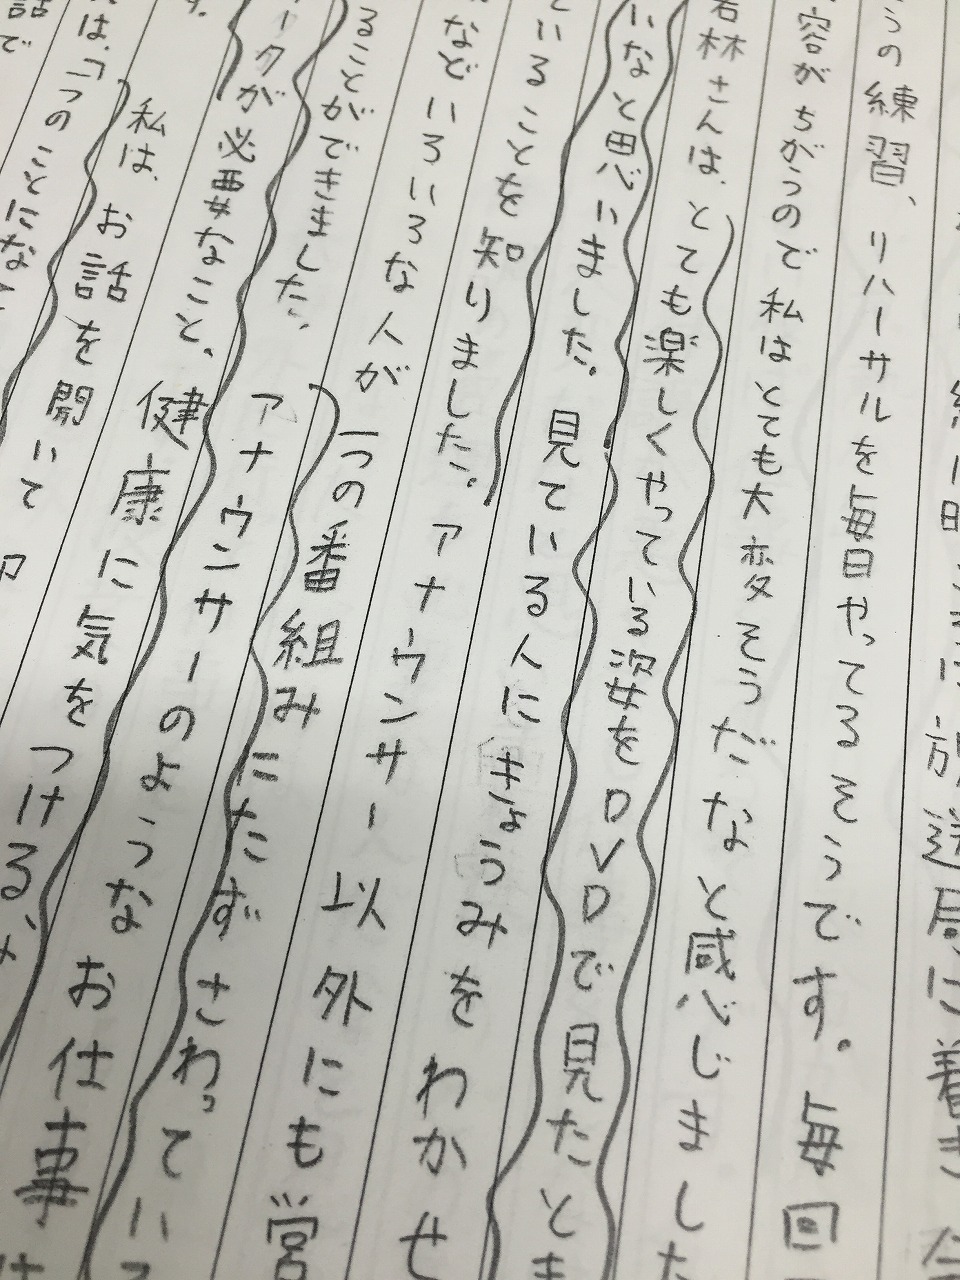 放送局に着き
うの練習、リハーサルを毎日やってるそうです。毎回
容がちがうので私はとても大変そうだなと感じました
若林さんは、とても楽しくやっている次女をDVDで見たとき
いなと思いました。見ている人にきょうみをわかせ
いることを知りました。アナウンサー以外にも営
などいろいろな人が一つの番組みにたずさわってい
ることができました。アナウンサーのようなお仕事
ータが必要なこと、健康に気をつける、
す。私は、お話を聞いて
は、「一つのことにな
話で